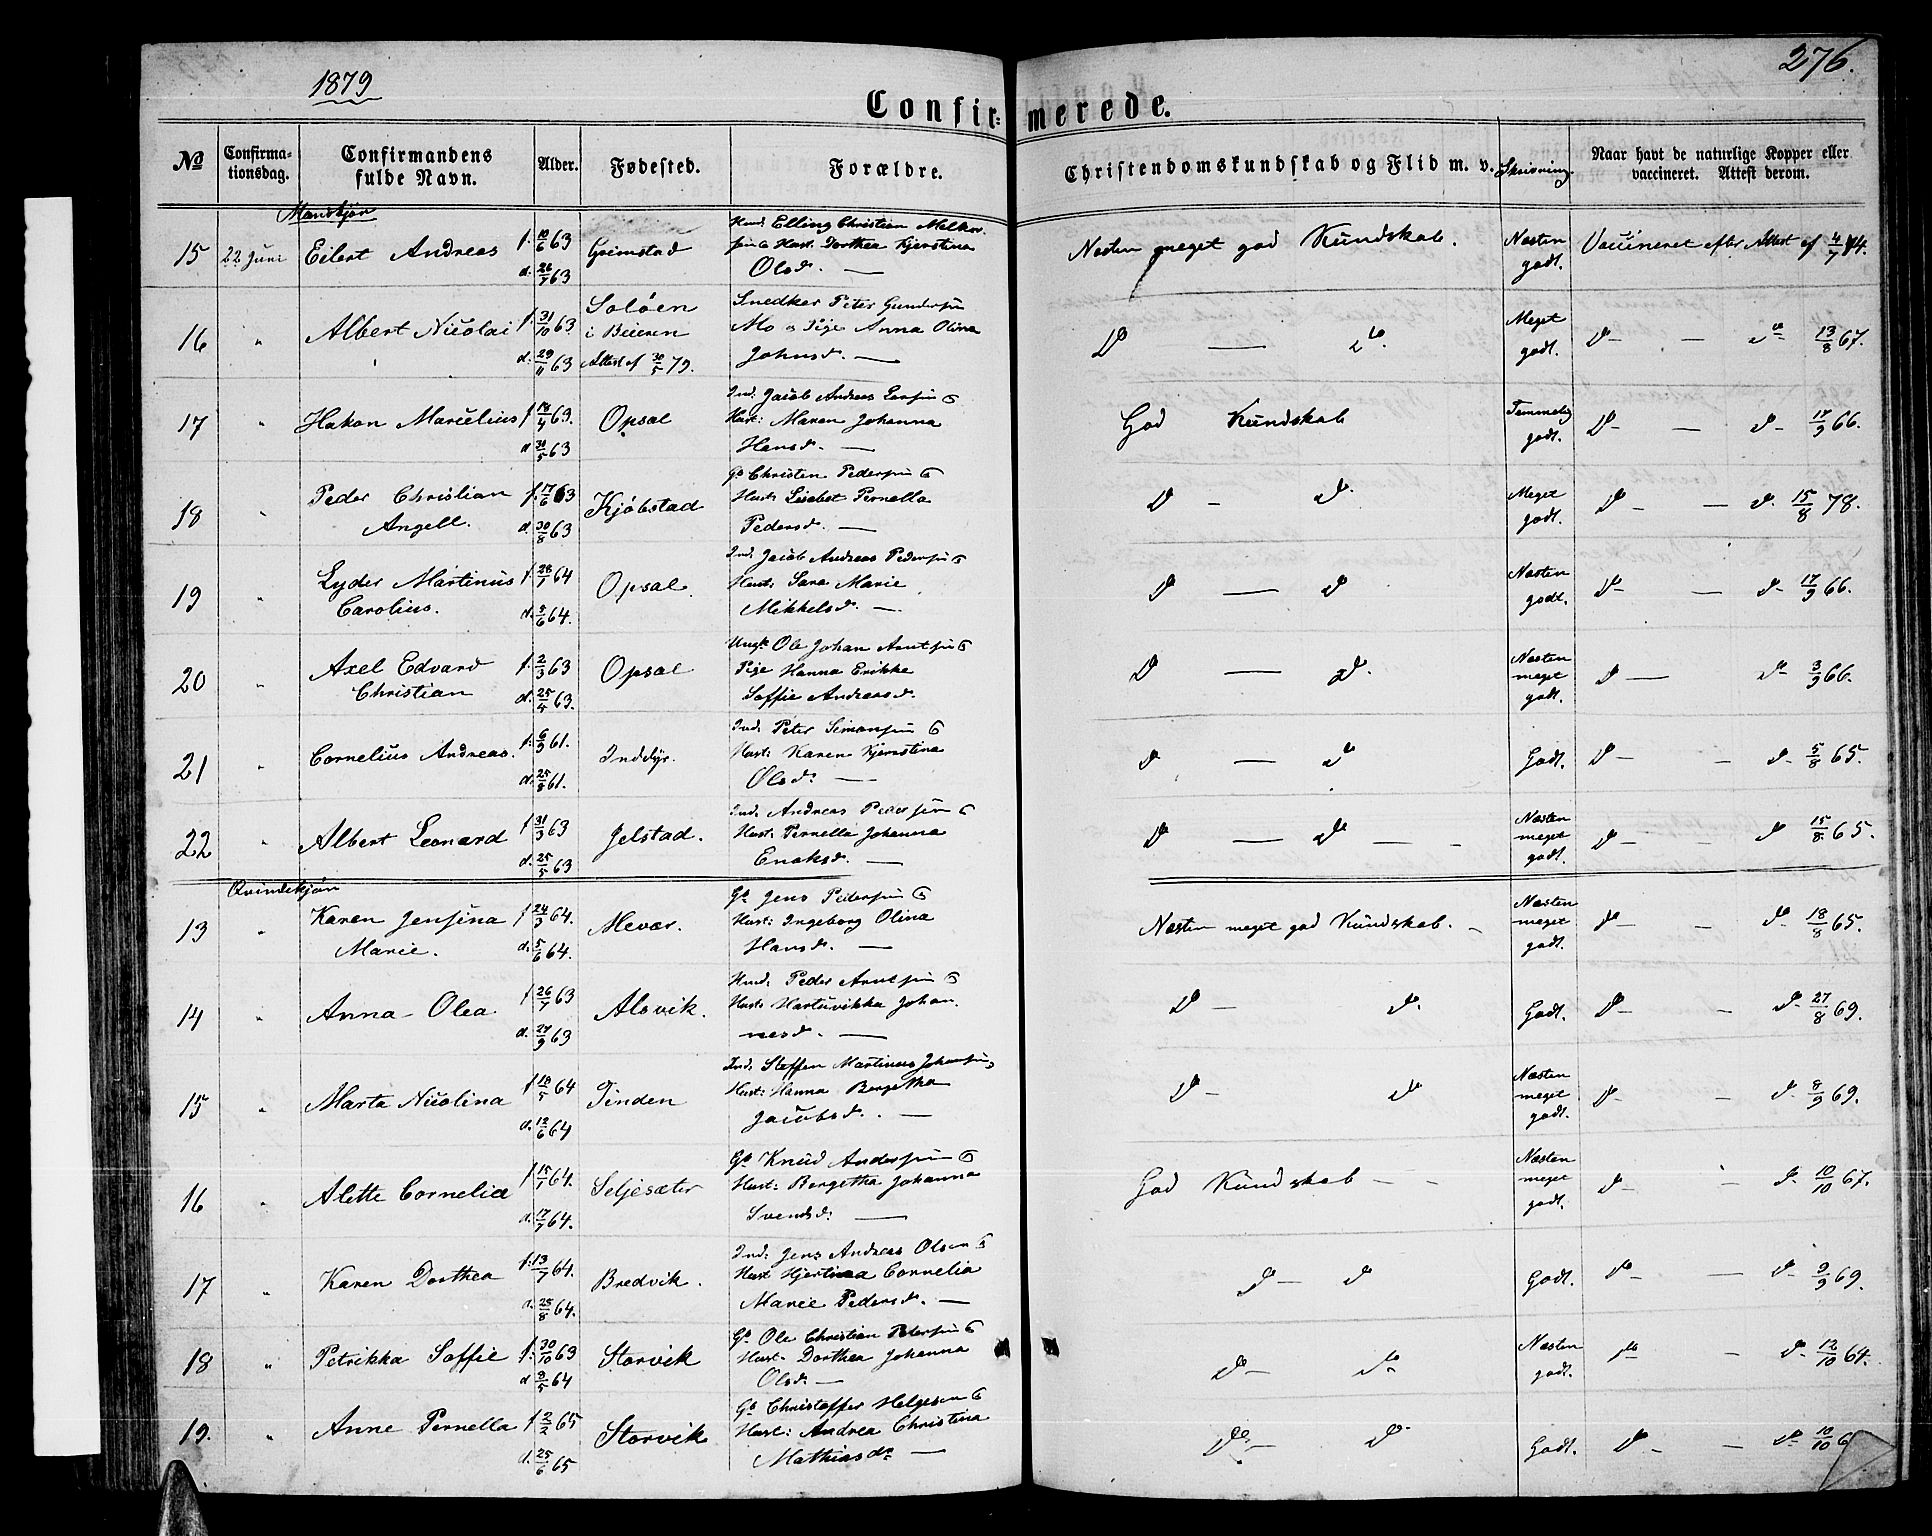 1879
276.
Confir=
merede.
No
Confirma-
tionsdag.
Confirmandens
fulde Navn.
Alder.
Fødested.
Forældre.
Christendomskundskab og Flid m. v.
Skrivning.
Naar havt de naturlige Kopper eller
vaccineret. Attest derom.
Mandkjøn
15 22 Juni Eilert Andreas f. 10/6 63 d. 26/7 63 Grimstad
Elling Christian
Hust. Dorthea Kjerstina
Olsd. —
Næsten meget god Kundskab. Næsten godt. Vaccineret efter Attest af 4/7 74.
16 " Albert Nicolai f. 31/10 63. d. 29/11 63 Soløen
i Beieren
Attest af 30/5 79.
Snedker Peter Gundersen
Mo o Pige Anna Olina
Johnsd. —
Do — do. Meget godt. Do — do 13/8 67.
17 " Hakon Marcelius f. 14/4 63. d. 30/5 63 Opsal
Ind. Jacob Andreas
Hust: Maren Johanna
Hansd. —
God Kundskab Temmelig godt. Do — do 17/9 66.
18 " Peder Christian
Angell. f. 17/6 63 d. 30/8 63 Kjøbstad
Gb Christen Pedersen &
Hust: Lisebet Pernella
Pedersd. —
Do — do. Meget godt. Do — do. 15/8 78.
19 " Lyder Martinus
Carolius. f. 28/1 64 d. 5/6 64. Opsal.
Ind. Jacob Andreas Pedersen &
Hust: Sara Marie
Mikkelsd. —
Do — do Næsten godt. Do — do 17/9 66.
20 " Axel Edvard
Christian f. 2/3 63 d. 25/5 63. Opsal
Ungk. Ole Johan Arntsen &
Pige Hanna Erikke
Soffie Andersd.
Do — do. Næsten meget godt. Do — do 3/9 66.
21 " Cornelius Andreas. f. 6/3 61. d. 25/8 61. Inddyr.
Ind. Peter Simonsen &
Hust: Karen Kjerstina
Olsd. —
Do — do Godt. Do — do 5/8 65.
22 " Albert Leonard f. 31/3 63 d. 25/5 63 Jelstad.
Ind. Andreas Pedersen &
Hust: Pernella Johanna
Enoksd. —
Do — do — Næsten meget godt. Do — do 15/8 65.
Qvindekjøn
13 " Karen Jensina
Marie. f. 24/3 64. d. 5/6 64. Mevær.
Gb. Jens Pedersen &
Hust: Ingeborg Olina
Hansd. —
Næsten meget god Kundskab. — Næsten meget godt. Do — do 18/8 65.
14 " Anna Olea f. 26/7 63 d. 27/9 63 Alsvik.
Hmd. Peder Arntsen &
Hust: Hartvikka Johan-
nesd. —
Do — do. Godt. Do — do 27/8 69.
15 " Marta Nicolina f. 10/5 64 d. 12/6 64 Tinden
Ind. Steffen Martinus Johansen
Hust: Hanna Bergetha
Jacobsd. —
Do — do Næsten meget godt. Do — do 8/9 69.
16 " Alette Cornelia f. 15/1 64. d. 17/7 64. Seljesæter
Gb Knud Andersen &
Hust: Bergetha Johanna
Svendsd. —
God Kundskab — Næsten meget godt. Do — do 10/10 67.
17 " Karen Dorthea f. 13/7 64. d. 25/8 64. Bredvik.
Ind: Jens Andreas Olsen &
Hust Hjertina Cornelia
Marie Pedersd. —
Do — do Godt. Do — do 9/9 69.
18 " Petrikka Soffie f. 30/10 63 d. 8/5 64 Storvik
Gb. Ole Christian Petersen &
Hust. Dorthea Johanna
Olsd. —
Do — do Næsten godt. Do — do 12/10 64.
19. " Anne Pernella f. 2/2 65 d. 25/6 65 Storvik
Gb Christoffer Helgesen &
Hust: Andrea Christina
Mathiasdr —
Do. — do. Godt. Do — do 10/10 6